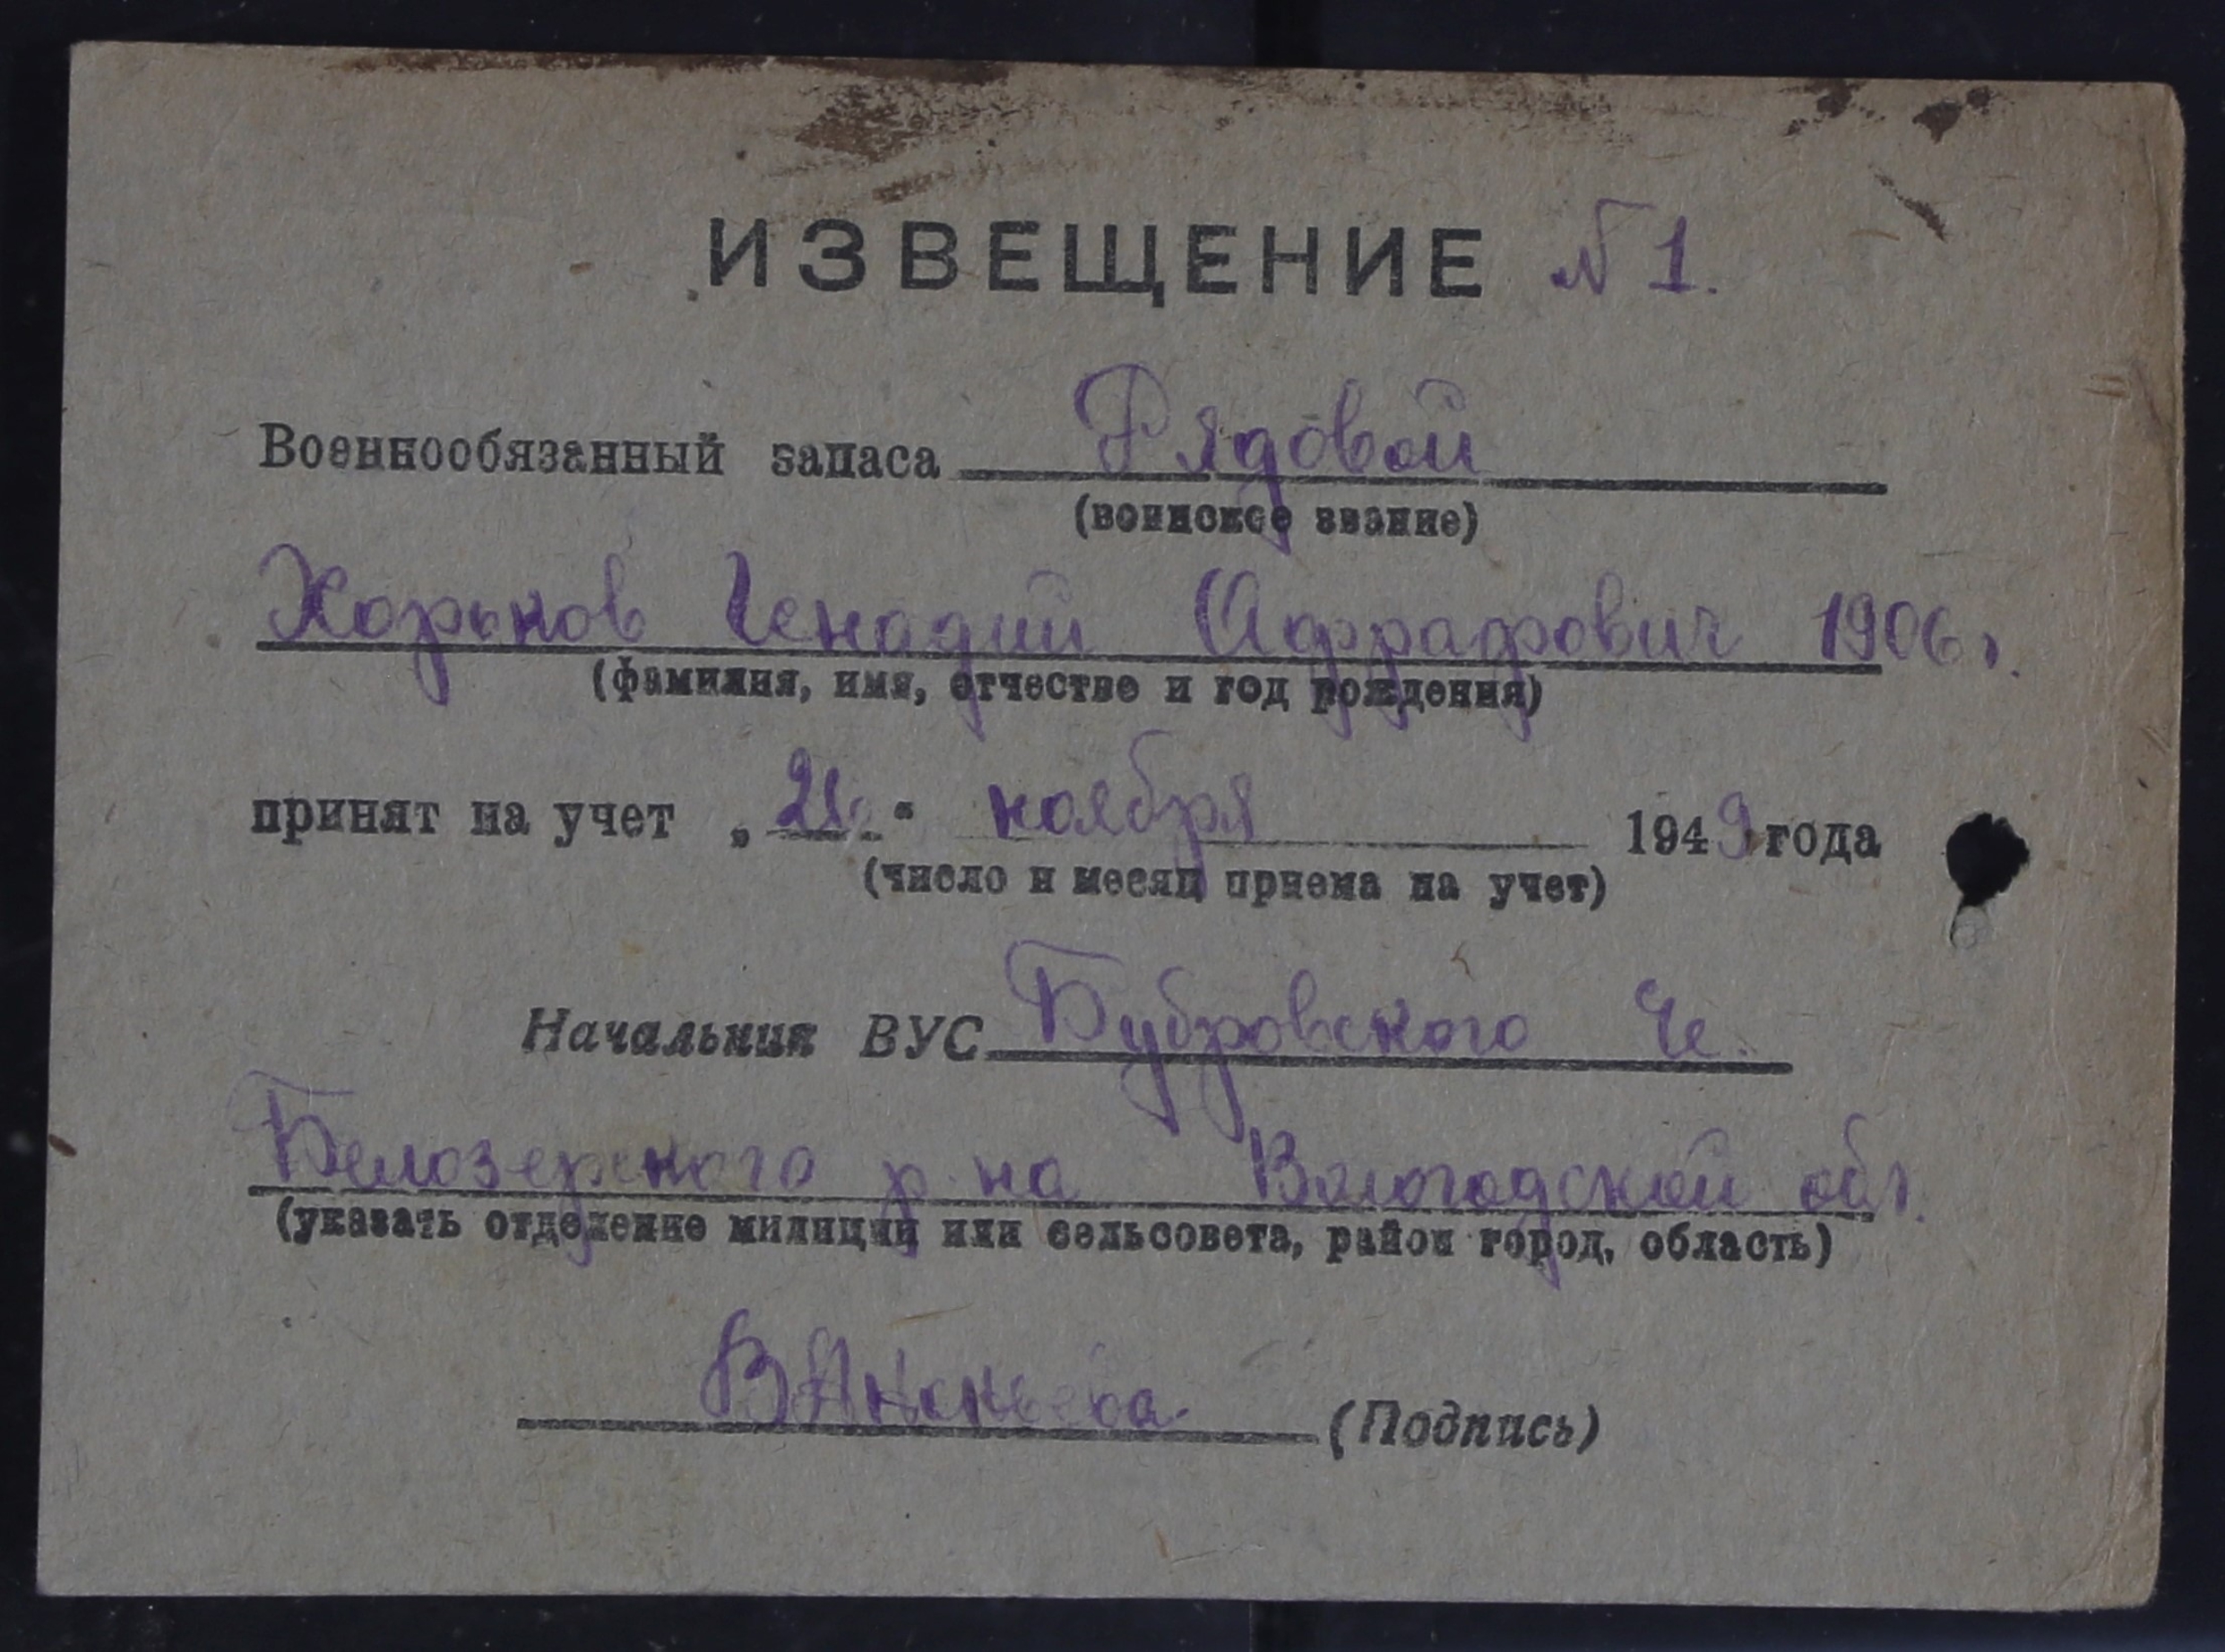 ИЗВЕЩЕНИЕ №1.
Военнообязанный запаса Рядовой
(воинское звание)
Хорьков Генадий Афрафович 1906 г.
(фамилия, имя, отчество и год рождения)
принят на учет „ “ ноября 1949 года
(число и месяц приема на учет)
Начальник ВУС Бубровского
Белозерского р-на Вологодской обл.
(указать отделение милиции или сельсовета, район город, область)
ВАнаньева (Подпись)